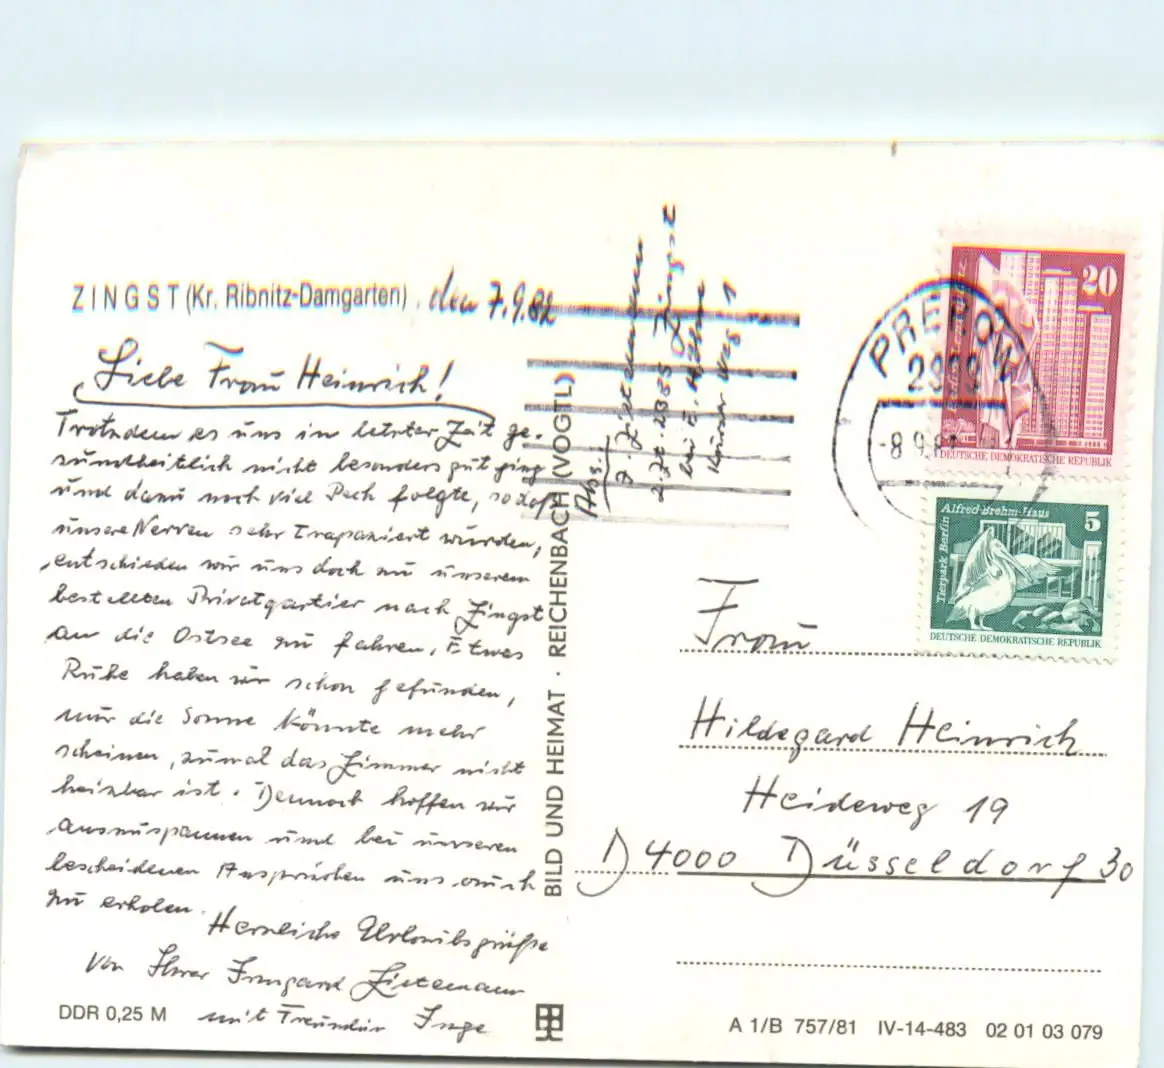 ZINGST (Kr. Ribnitz-Damgarten), den 7.9.82
Liebe Frau Heinrich!
Trotzdem es uns in letzter Zeit ge-
sundheitlich nicht besonders gut ging
und dann noch viel Pech folgte, so daß
unsere Nerven sehr strapaziert wurden,
entschieden wir uns doch zu unserem
bestellten Privatquartier nach Zingst
an die Ostsee zu fahren. Etwas
Ruhe haben wir schon gefunden,
nur die Sonne könnte mehr
scheinen, zumal das Zimmer nicht
heizbar ist. Dennoch hoffen wir
auszuspannen und bei unseren
bescheidenen Ansprüchen uns auch
zu erholen.
Herzliche Urlaubsgrüße
von Ihrer Irmgard
mit Freundin Inge
DDR 0,25 M
BILD UND HEIMAT · REICHENBACH (VOGTL)
Abs.:
z. Zt. 2385 Zingst
bei E.
Weg 1
PREROW
-8.9.82
20
DEUTSCHE DEMOKRATISCHE REPUBLIK
Alfred-Brehm-Haus
5
Tierpark Berlin
DEUTSCHE DEMOKRATISCHE REPUBLIK
Frau
Hildegard Heinrich
Heideweg 19
D 4000 Düsseldorf 30
A 1/B 757/81 IV-14-483 02 01 03 079